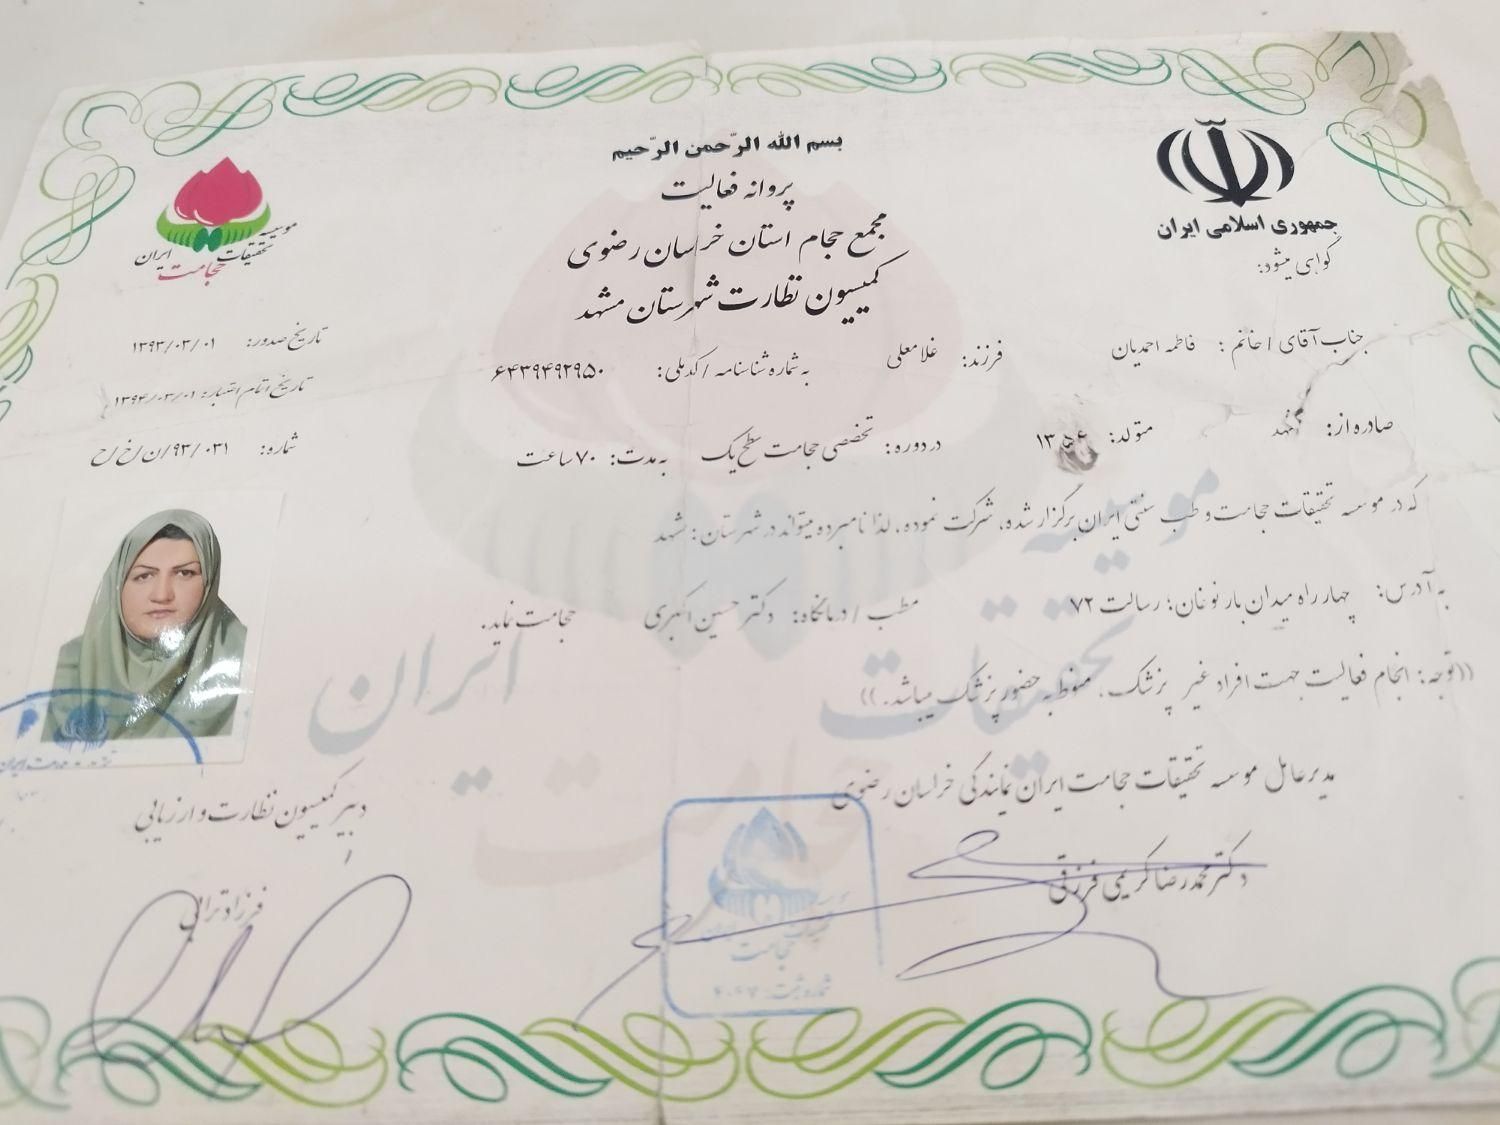 بسم الله الرّحمن الرّحیم
پروانه فعالیت
مجمع حجام استان خراسان رضوی
کمیسیون نظارت شهرستان مشهد
جمهوری اسلامی ایران
گواهی میشود:
موسسه تحقیقات حجامت ایران
تاریخ صدور: ۱۳۹۳/۰۳/۰۱
تاریخ اتمام اعتبار: ۱۳۹۴/۰۳/۰۱
شماره: ۹۳/۰۳۱/ن/خ/ح
جناب آقای / خانم: فاطمه احمدیان فرزند: غلامعلی به شماره شناسنامه / کدملی: ۶۴۳۹۴۹۲۹۵۰
صادره از: متولد: ۱۳۵۶ در دوره: تخصصی حجامت سطح یک به مدت: ۷۰ ساعت
که در موسسه تحقیقات حجامت و طب سنتی ایران برگزار شده، شرکت نموده، لذا نامبرده میتواند در شهرستان: مشهد
به آدرس: چهارراه میدان بار نوغان؛ رسالت ۷۲ مطب / درمانگاه: دکتر حسین اکبری حجامت نماید.
((توجه: انجام فعالیت جهت افراد غیر پزشک، منوط به حضور پزشک میباشد.))
مدیرعامل موسسه تحقیقات حجامت ایران نمایندگی خراسان رضوی
دکتر محمدرضا کریمی فرزقی
دبیر کمیسیون نظارت و ارزیابی
فرزاد ترابی
موسسه تحقیقات حجامت ایران
شماره ثبت:
موسسه تحقیقات حجامت ایران